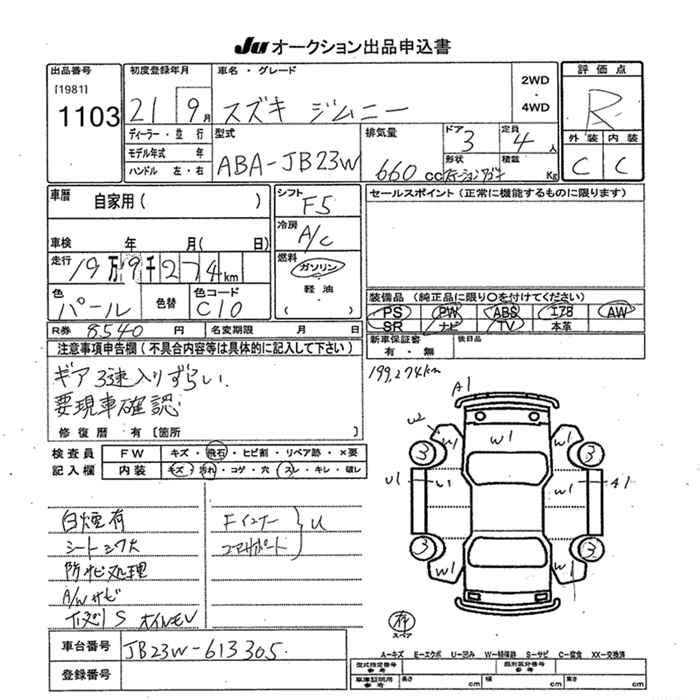 Ju オークション出品申込書
出品番号
[1981]
1103
初度登録年月
21 9月
車名・グレード
スズキ ジムニー
2WD
・
4WD
評価点
R
ディーラー・並行
モデル年式 年
ハンドル 左・右
型式
ABA-JB23W
排気量
660 cc
ドア
3
定員
4人
形状
ステーションワゴン
積載
Kg
外装 内装
C C
車歴
自家用( )
車検 年 月( 日)
走行
19万9千274km
シフト
F5
冷房
A/C
燃料
ガソリン
・
軽油
( )
セールスポイント(正常に機能するものに限ります)
色
パール
色替
色コード
C10
装備品(純正品に限り○を付けてください)
PS PW ABS エアB AW
SR ナビ TV 本革
R券 8540 円 名変期限 月 日
新車保証書
有・無
後日品
注意事項申告欄(不具合内容等は具体的に記入して下さい)
ギア3速入りずらい.
要現車確認
修復歴 有[箇所 ]
199,274km
検査員
記入欄
FW キズ・飛石・ヒビ割・リペア跡・×要
内装 キズ・汚れ・コゲ・穴・スレ・キレ・破レ
白煙有
シート
防サビ処理
A/Wサビ
S オイルモレ
Fインナー
コアサポート
U
A1
W
W1 W1 W1
3 3
U1 U1 W1 W1 A1
3 3
W1 W1
有
スペア
車台番号 JB23W-613305.
登録番号
A−キズ E−エクボ U−凹み W−補修跡 S−サビ C−腐食 XX−交換済
型式指定番号
参考
類別区分番号
参考
車庫証明用
参考
長さ cm 幅 cm 高さ cm